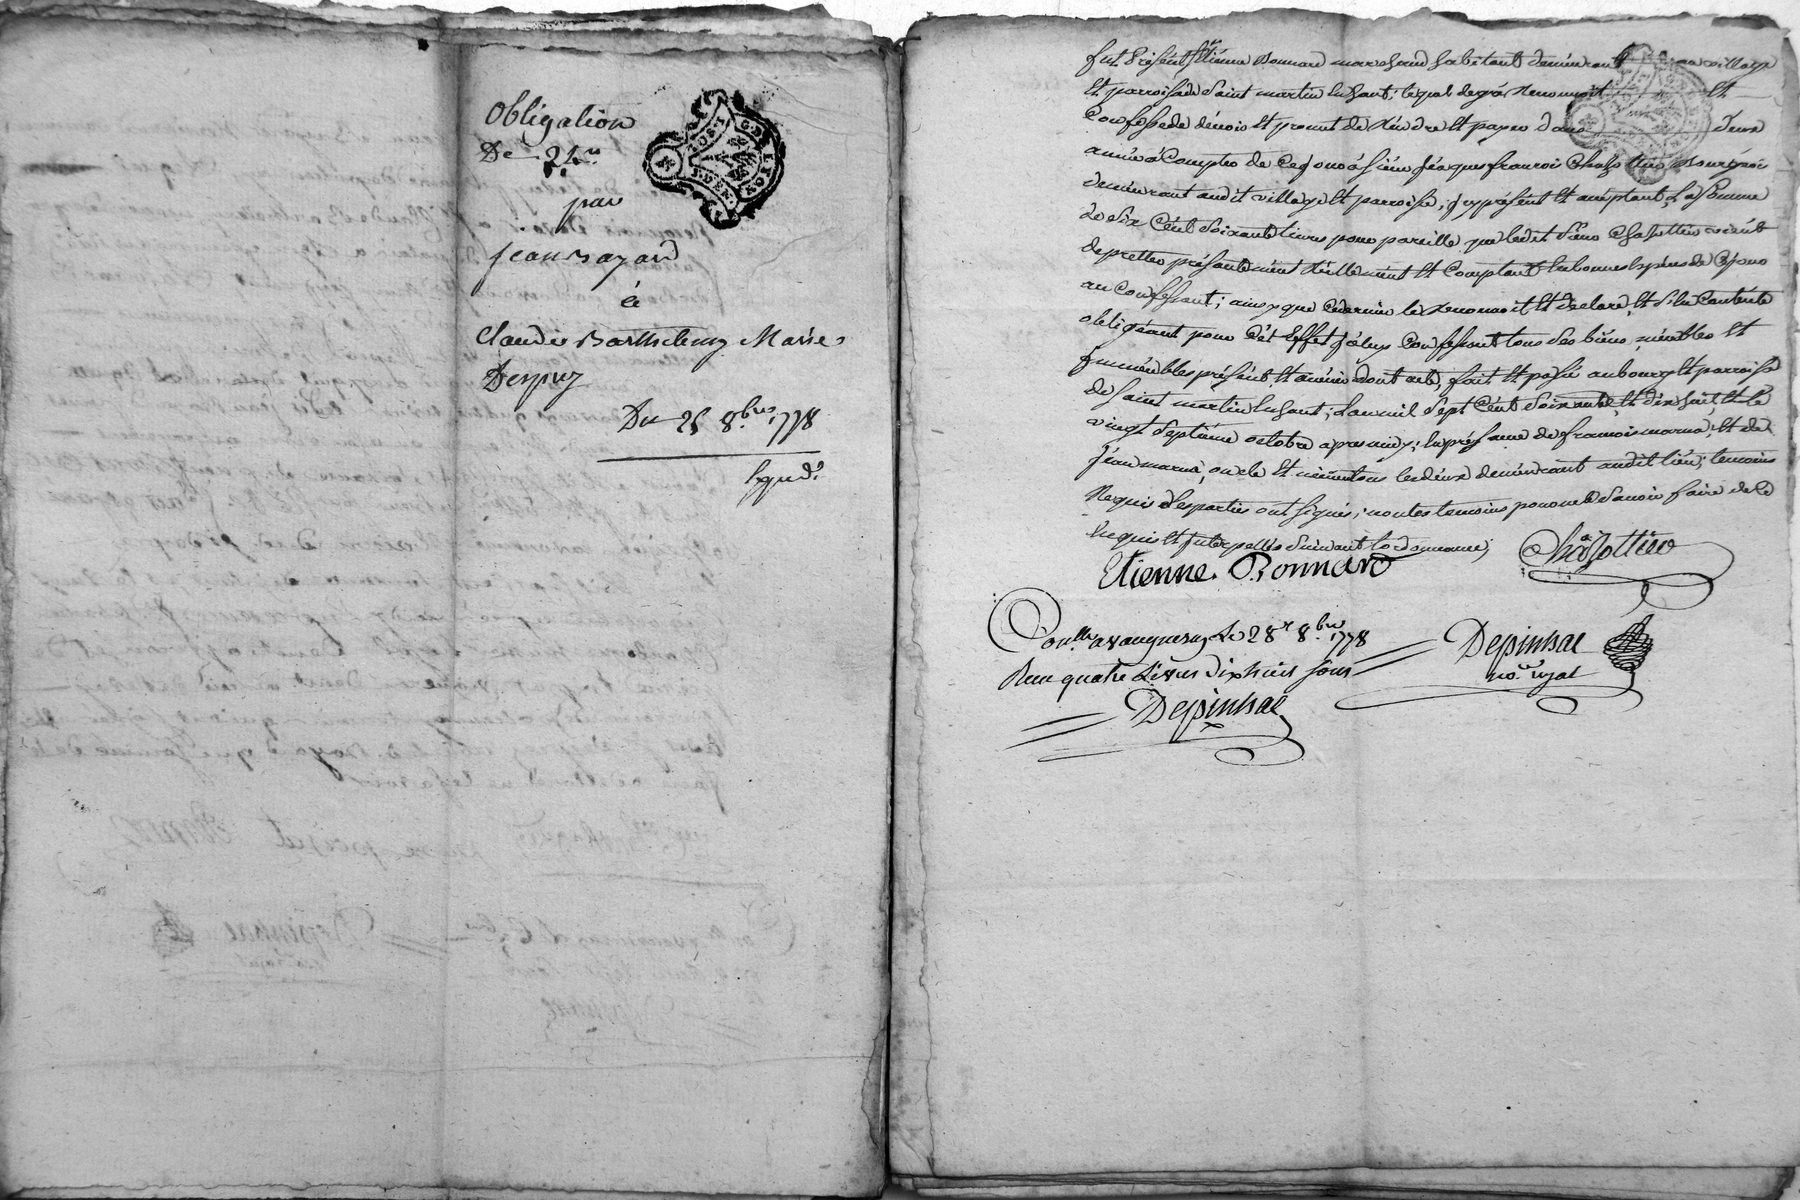 Obligation
De 24ᵗᵗ
par
jean Bayard
à
Claude Barthelemy Marie
Despuy
Du 25 8.bre 1778
Expéd.
G.D. LYON
fut présent sr Etiénne Bonnard marchand habitant demeurant village
Et parroisse de Saint martin En haut, lequel de gré reconnoit Et
Confesse de devoir Et promet de réndre Et payer dans deux
année à Compter de Ce jour à sieur jéacque francois Chasottier Bourgeois
demeurant audit village Et parroisse, jcy présent Et acceptant, La Somme
de Six Cént Soixante livres pour pareille que ledit sieur Chasottier vient
de pretter présentement réellemént Et Comptant En bonnes Espéces de Ce jour
au Confessant; ainsy que Ce dernier le reconnoit Et déclare, Et s'En Contente
obligéant pour Cét Effet jcéluy Confessant tous Ses biens, meubles Et
jmmeubles présént Et avénir dont acte, fait Et passé au bourg Et parroisse
de Saint martin En haut, L'an mil Sept Cént Soixante Et dix huit, Et le
vingt Septiéme octobre apres midy; En présance de francois marna, Et de
jéan marna, oncle Et les deux demeurant audit lieu; temoins
Requis Les parties ont signés; non les temoins pour ne Savoir faire de Ce
Enquis Et jnterpellés Suivant L'ordonnance;
Etienne. Bonnard Chasottier
Conllé a vaugneray Le 28e 8.bre 1778 Despinhac
Reçu quatre Livres dix huit Sous no.re royal
Despinhac